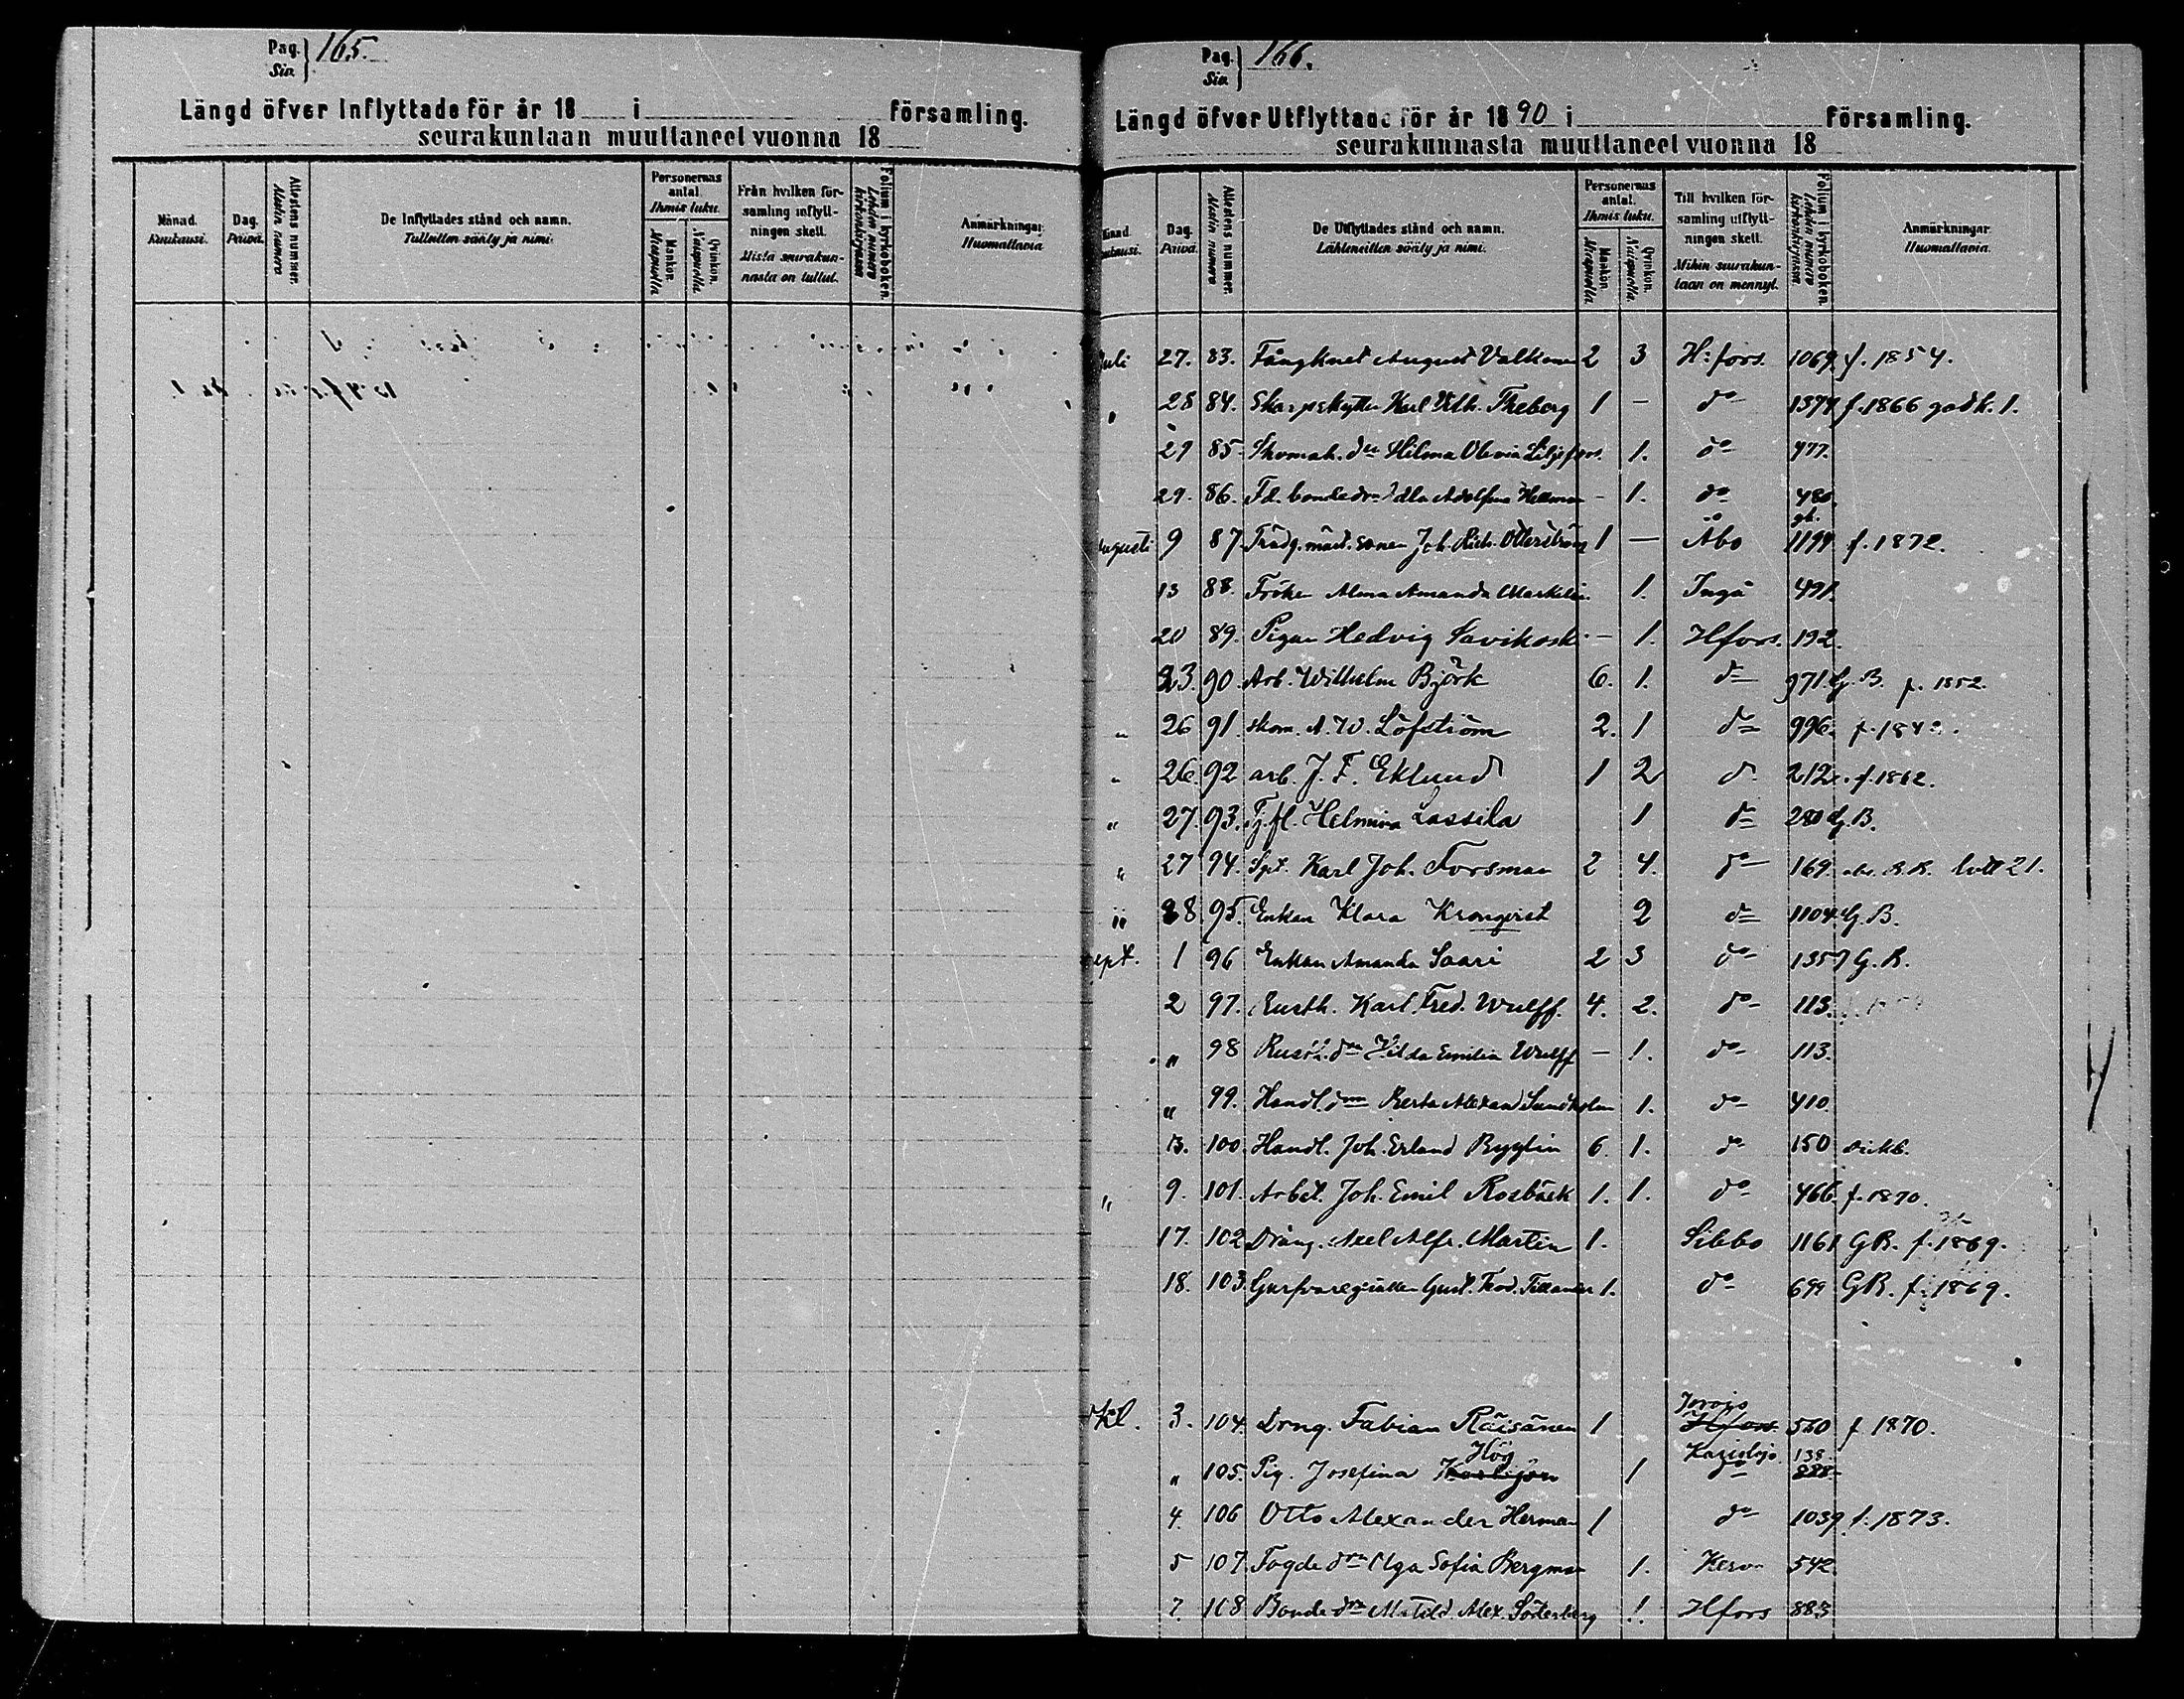 Pag. 165.
Siv.
Längd öfver Inflyttade för år 18 i församling.
seurakuntaan muuttaneet vuonna 18
Månad. Kuukausi.
Dag. Päivä.
Attestens nummer. Atestin numero
De Inflyttades stånd och namn. Tulleitten sääty ja nimi.
Personernas antal. Ihmis luku.
Mankön. Miespuolia
Qvinkön. Naispuolia
Från hvilken församling inflyttningen skett. Mista seurakunnasta on tullut.
Folium i kyrkoboken. Lehden numero kirkonkirjassa
Anmärkningar. Huomattavia
Pag. 166.
Siv.
Längd öfver Utflyttade för år 1890 i församling.
seurakunnasta muuttaneet vuonna 18
Dag. Päivä.
Attestens nummer. Atestin numero
De Utflyttades stånd och namn. Lähteneitten sääty ja nimi.
Personernas antal. Ihmis luku.
Mankön. Miespuolia.
Qvinkön. Naispuolia.
Till hvilken församling utflyttningen skett. Mihin seurakuntaan on mennyt.
Folium i kyrkoboken. Lehden numero kirkonkirjassa
Anmärkningar. Huomattavia.
Juli 27. 83. August 2 3 H:fors. 1069. f. 1854.
" 28 84. Skarpskytten Karl Vilh. Theberg 1 – do 1374 f. 1866 godk. 1.
29 85. Skomak. dr Hilma Olivia Liljefors. 1. do 477.
29. 86. Fd. bondedr Adolfina Hellman – 1. do 480.
Augusti 9 87. Trädg.mäst. sonen Joh. Rich. Otterström 1 – Åbo 1194 f. 1872.
13 88. Fröken Alma Amanda 1. Ingå 491.
20 89. Pigan Hedvig Savikoski – 1. Hfors. 192.
23. 90. Arb. Wilhelm Björk 6. 1. do 971. G. B. f. 1852.
" 26 91. skom. A. W. Löfström 2. 1 do 996.
" 26. 92 arb. J. F. Eklund 1 2 do 212. f. 1862.
" 27. 93. Tj.fl. Helmina Lassila 1 do 280 G. B.
" 27 94. Spt. Karl Joh. Forsman 2 4. do 169. lott 21.
" 28 95. Enkan Klara Kronqvist 2 do 1104. G. B.
Sept. 1 96 Enkan Amanda Saari 2 3 do 1357 G. B.
2 97. Karl Fred. Wulff. 4. 2. do 113.
" 98 dr Hilda Emilia Wulff – 1. do 113.
" 99. Handl. dr Berta Alexand Sundholm 1. do 410.
13. 100. Handl. Joh. Erland Rygtin 6. 1. do 150
" 9. 101. Arbet. Joh. Emil Rosbäck 1. 1. do 466. f. 1870.
17. 102 Dräng. Axel Alfr. Martin 1. Sibbo 1161 GB. f. 1869.
18. 103. Garfvaregesällen Gust. Teod. Tillander 1. do 699 GB. f. 1869.
Jorois
Okt. 3. 104. Drng. Fabian Räisänen 1 Hfors. 560 f 1870.
Hög Karislojo 138.
" 105. Pig. Josefina 1 do 888
4. 106 Otto Alexander Herman 1 do 1039 f. 1873.
5 107. Fogde dr Olga Sofia Bergman 1. Kervo 542
7. 108 Bonde dr Matild. Alex. Söderberg 1. Hfors 883